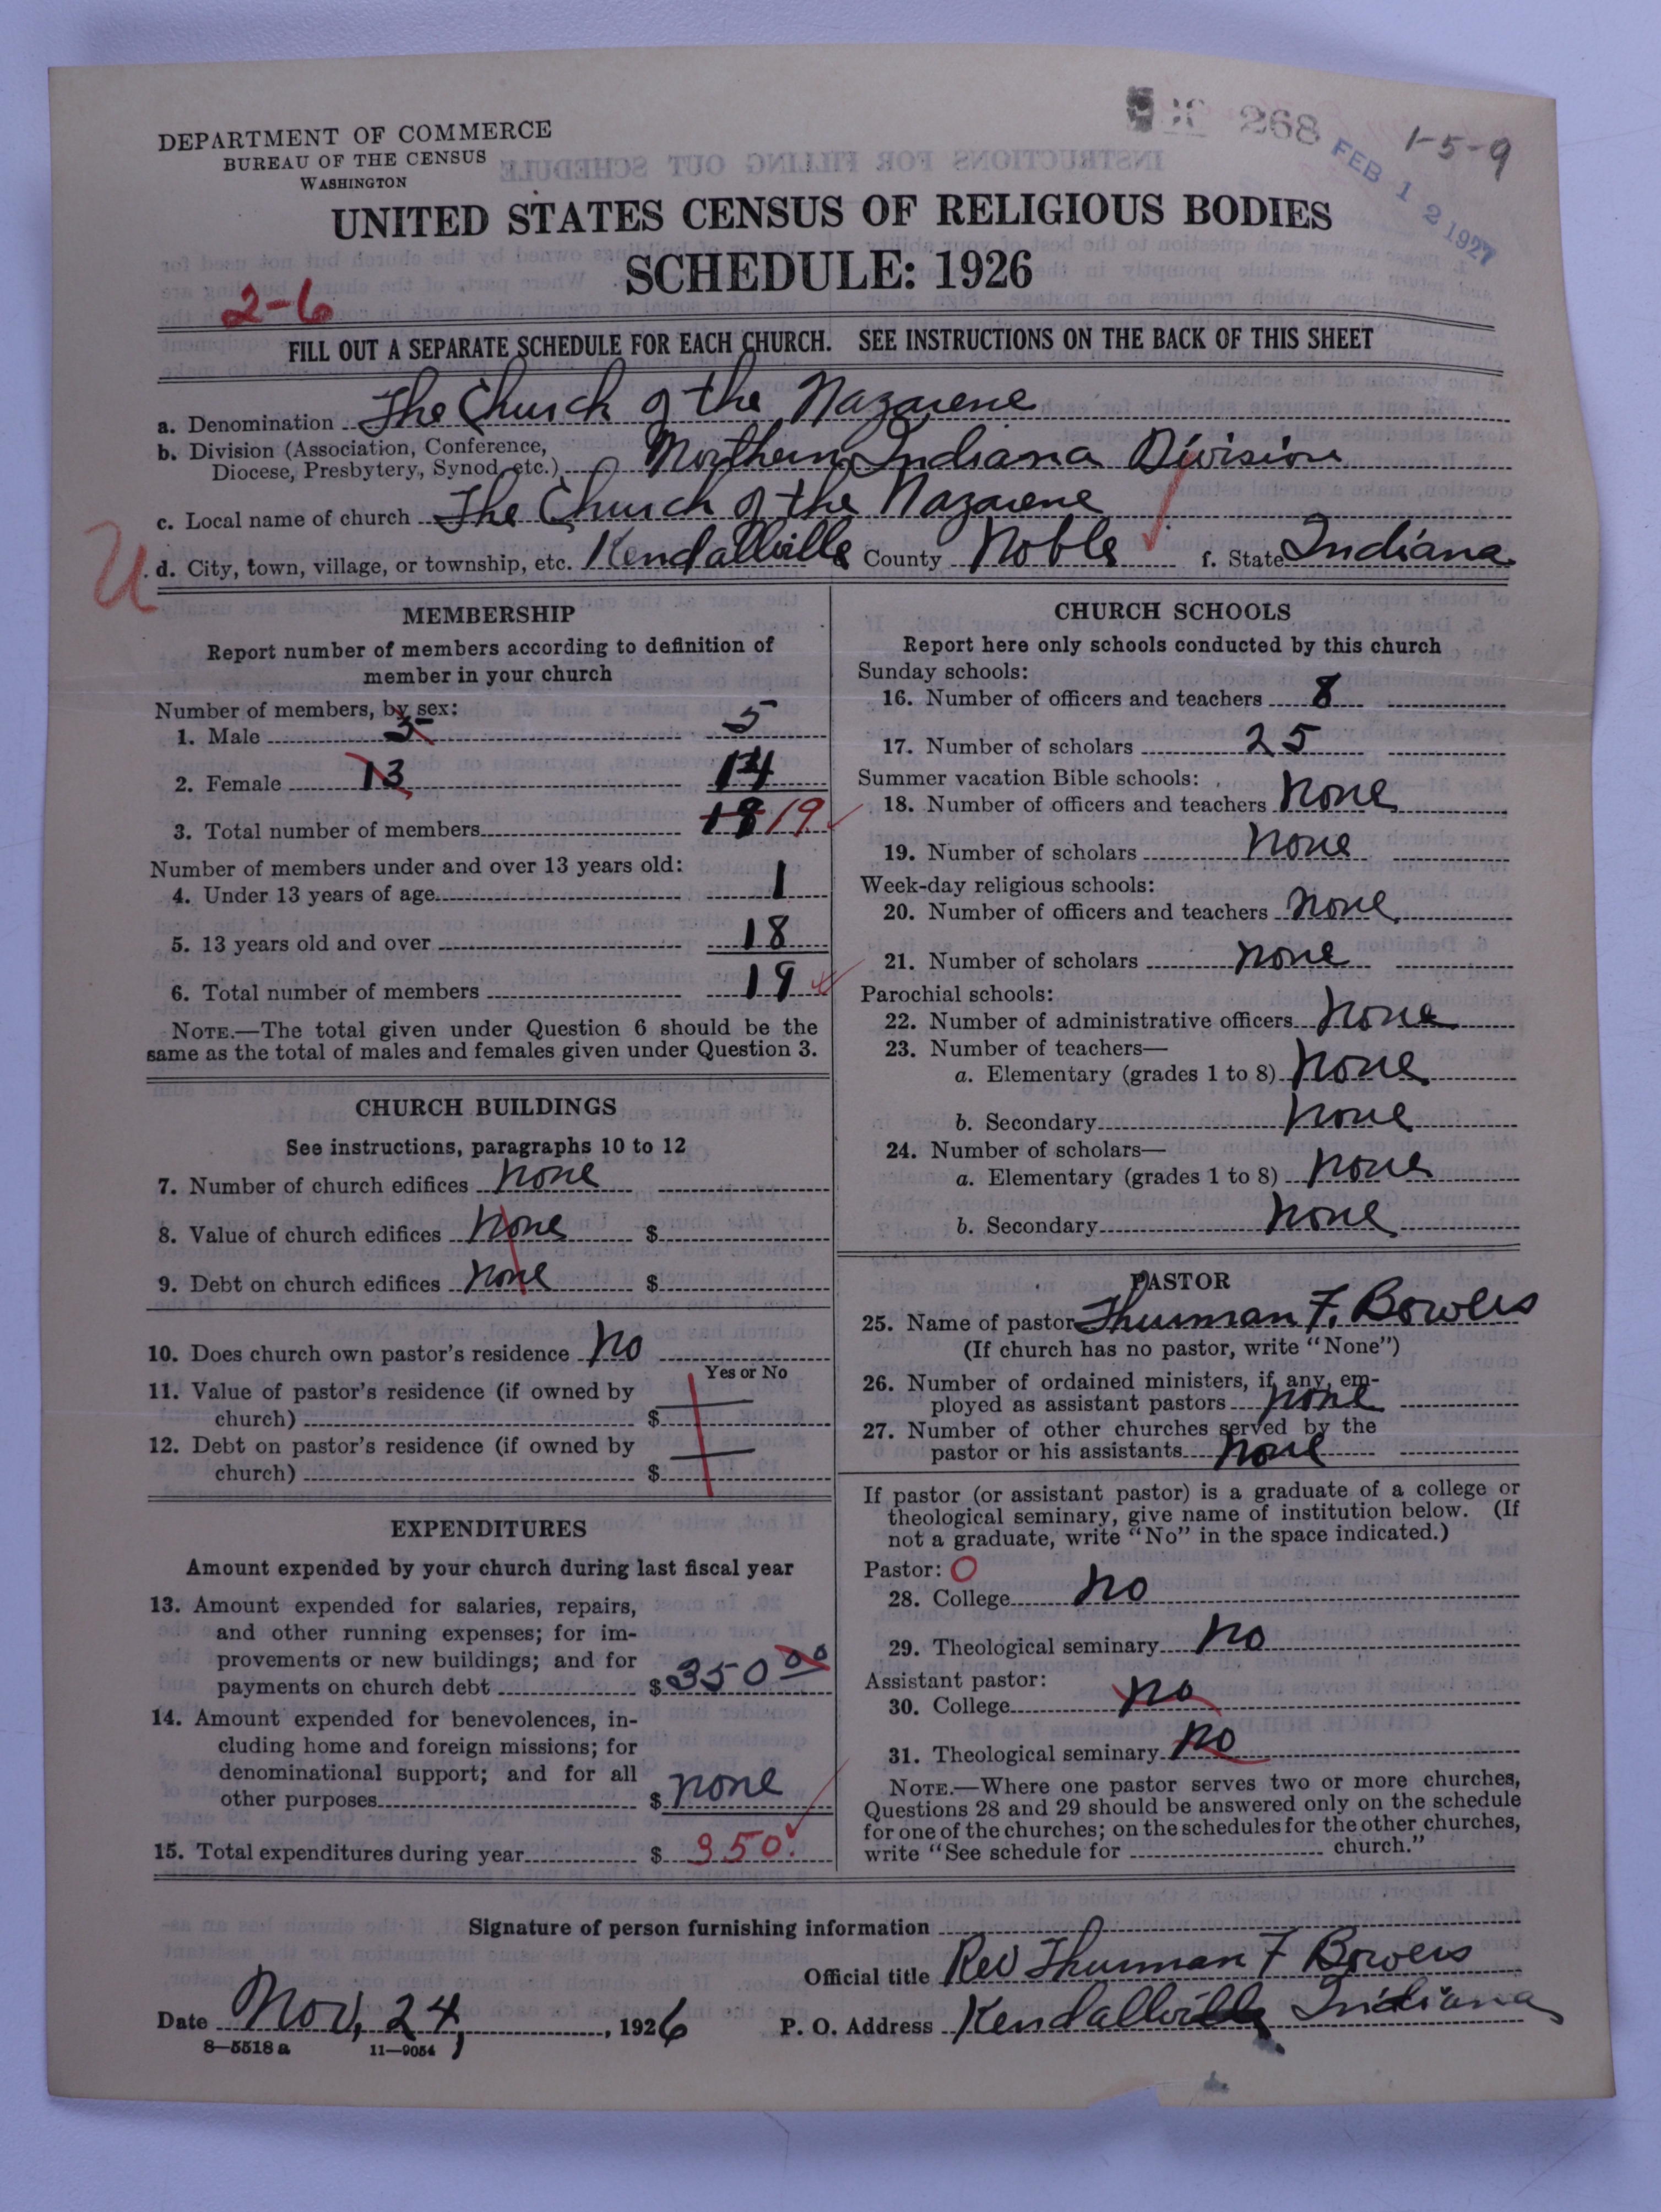 268
FEB 12 1927
1-5-9
DEPARTMENT OF COMMERCE
BUREAU OF THE CENSUS
WASHINGTON
UNITED STATES CENSUS OF RELIGIOUS BODIES
SCHEDULE: 1926
2-6
FILL OUT A SEPARATE SCHEDULE FOR EACH CHURCH. SEE INSTRUCTIONS ON THE BACK OF THIS SHEET
a. Denomination The Church of the Nazarene
b. Division (Association, Conference,
Diocese, Presbytery, Synod, etc.) Northern Indiana Division
c. Local name of church The Church of the Nazarene
U d. City, town, village, or township, etc. Kendallville County Noble f. State Indiana
MEMBERSHIP
Report number of members according to definition of
member in your church
Number of members, by sex:
1. Male 5 5
2. Female 13 14
3. Total number of members 18 19
Number of members under and over 13 years old:
4. Under 13 years of age 1
5. 13 years old and over 18
6. Total number of members 19
NOTE.—The total given under Question 6 should be the
same as the total of males and females given under Question 3.
CHURCH BUILDINGS
See instructions, paragraphs 10 to 12
7. Number of church edifices none
8. Value of church edifices none $
9. Debt on church edifices none $
10. Does church own pastor's residence no
Yes or No
11. Value of pastor's residence (if owned by
church) $
12. Debt on pastor's residence (if owned by
church) $
EXPENDITURES
Amount expended by your church during last fiscal year
13. Amount expended for salaries, repairs,
and other running expenses; for im-
provements or new buildings; and for
payments on church debt $350 00
14. Amount expended for benevolences, in-
cluding home and foreign missions; for
denominational support; and for all
other purposes $ none
15. Total expenditures during year $ 350.
CHURCH SCHOOLS
Report here only schools conducted by this church
Sunday schools:
16. Number of officers and teachers 8
17. Number of scholars 25
Summer vacation Bible schools:
18. Number of officers and teachers none
19. Number of scholars none
Week-day religious schools:
20. Number of officers and teachers none
21. Number of scholars none
Parochial schools:
22. Number of administrative officers none
23. Number of teachers—
a. Elementary (grades 1 to 8) none
b. Secondary none
24. Number of scholars—
a. Elementary (grades 1 to 8) none
b. Secondary none
PASTOR
25. Name of pastor Thurman F. Bowers
(If church has no pastor, write "None")
26. Number of ordained ministers, if any, em-
ployed as assistant pastors none
27. Number of other churches served by the
pastor or his assistants none
If pastor (or assistant pastor) is a graduate of a college or
theological seminary, give name of institution below. (If
not a graduate, write "No" in the space indicated.)
Pastor: O
28. College no
29. Theological seminary no
Assistant pastor:
30. College no
31. Theological seminary no
NOTE.—Where one pastor serves two or more churches,
Questions 28 and 29 should be answered only on the schedule
for one of the churches; on the schedules for the other churches,
write "See schedule for church."
Signature of person furnishing information
Official title Rev Thurman F Bowers
Date Nov, 24, , 1926 P. O. Address Kendallville Indiana
8—5518 a 11—9054